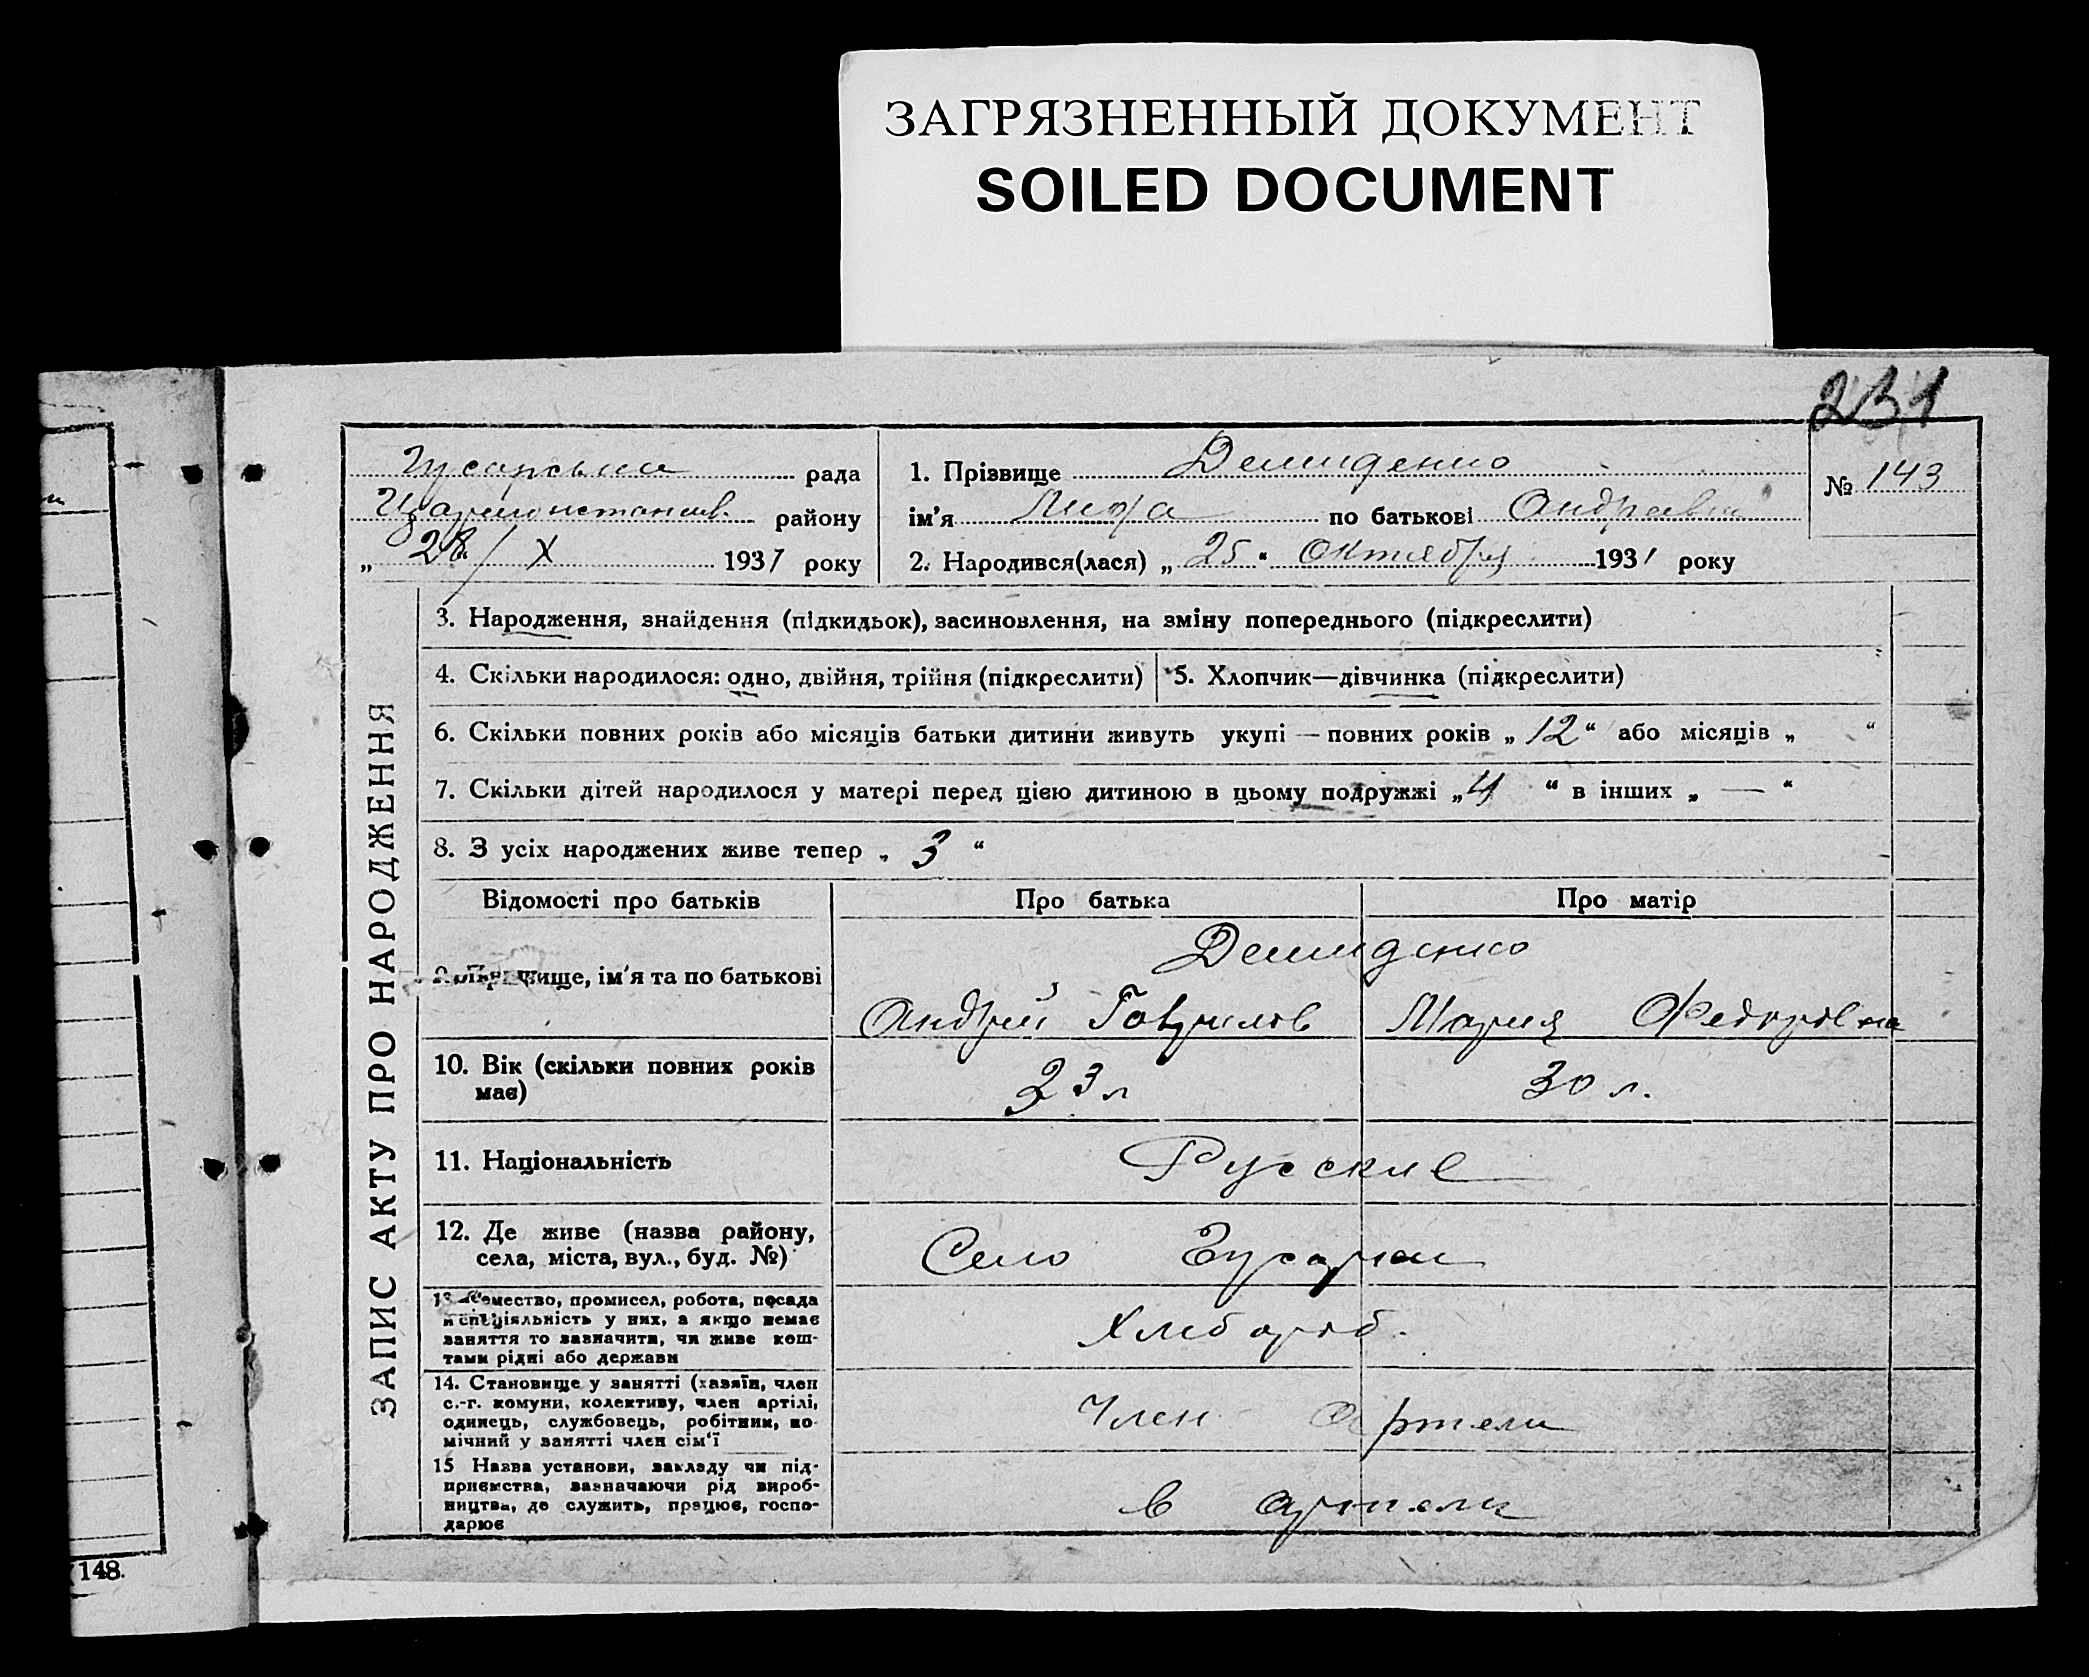 ЗАГРЯЗНЕННЫЙ ДОКУМЕНТ
SOILED DOCUMENT
231
Гусарська рада
району
28/X 1931 року
1. Прізвище Демиденко
ім'я по батькові
№ 143
2. Народився(лася) „ 25 “ Октября 1931 року
ЗАПИС АКТУ ПРО НАРОДЖЕННЯ
3. Народження, знайдення (підкидьок), засиновлення, на зміну попереднього (підкреслити)
4. Скільки народилося: одно, двійня, трійня (підкреслити)
5. Хлопчик—дівчинка (підкреслити)
6. Скільки повних років або місяців батьки дитини живуть укупі — повних років „ 12 “ або місяців „ “
7. Скільки дітей народилося у матері перед цією дитиною в цьому подружжі „ 4 “ в інших „ — “
8. З усіх народжених живе тепер „ 3 “
Відомості про батьків Про батька Про матір
Демиденко
9. Прізвище, ім'я та по батькові
Андрей Гаврилов Мария Федоровна
10. Вік (скільки повних років
має)
23 л 30 л.
11. Національність Русские
12. Де живе (назва району,
села, міста, вул., буд. №)
Село Гусарки
13 емество, промисел, робота, посада
й спеціяльність у них, а якщо немає
заняття то зазначити, чи живе кош-
тами рідні або держави
Хлебороб.
14. Становище у занятті (хазяїн, член
с.-г. комуни, колективу, член артілі,
одинець, службовець, робітник, по-
мічний у занятті член сім'ї
Член Артели
15 Назва установи, закладу чи під-
приємства, зазначаючи рід вироб-
ництва, де служить, працює, госпо-
дарює
в артели
148.